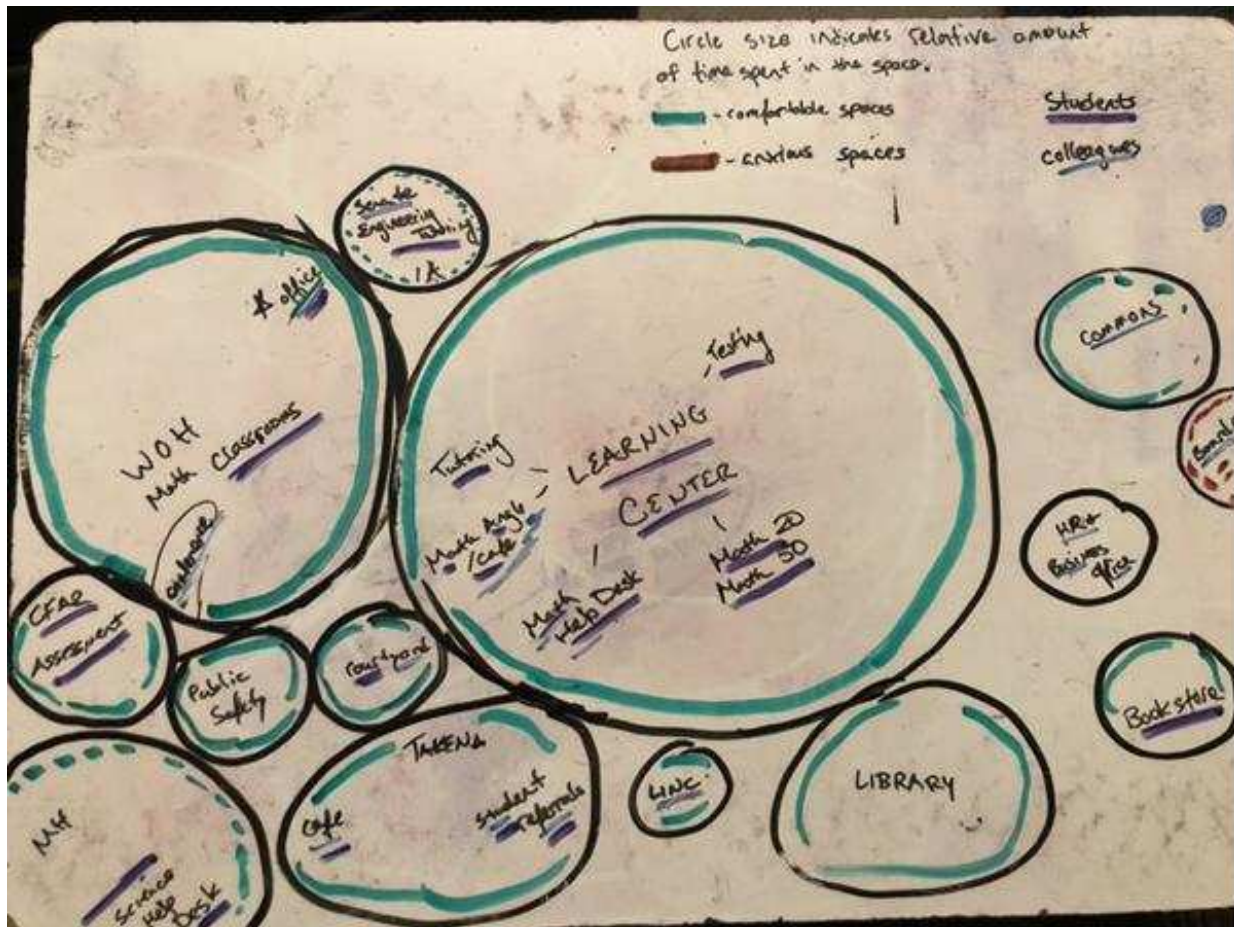 Circle size indicates relative amount
of time spent in the space.
- comfortable spaces
- anxious spaces
Students
colleagues
Senate
Engineering
Tutoring
IA
* office
WOH
Math Classrooms
conference
Testing
LEARNING
CENTER
Tutoring
Math Angle
/cafe
Math
Help Desk
Math 20
Math 50
COMMONS
HR +
Business
office
Bookstore
CFAR
ASSESSMENT
Public
Safety
Courtyard
TAKENA
cafe
student
referrals
LINC
LIBRARY
MH
Science
Help
Desk